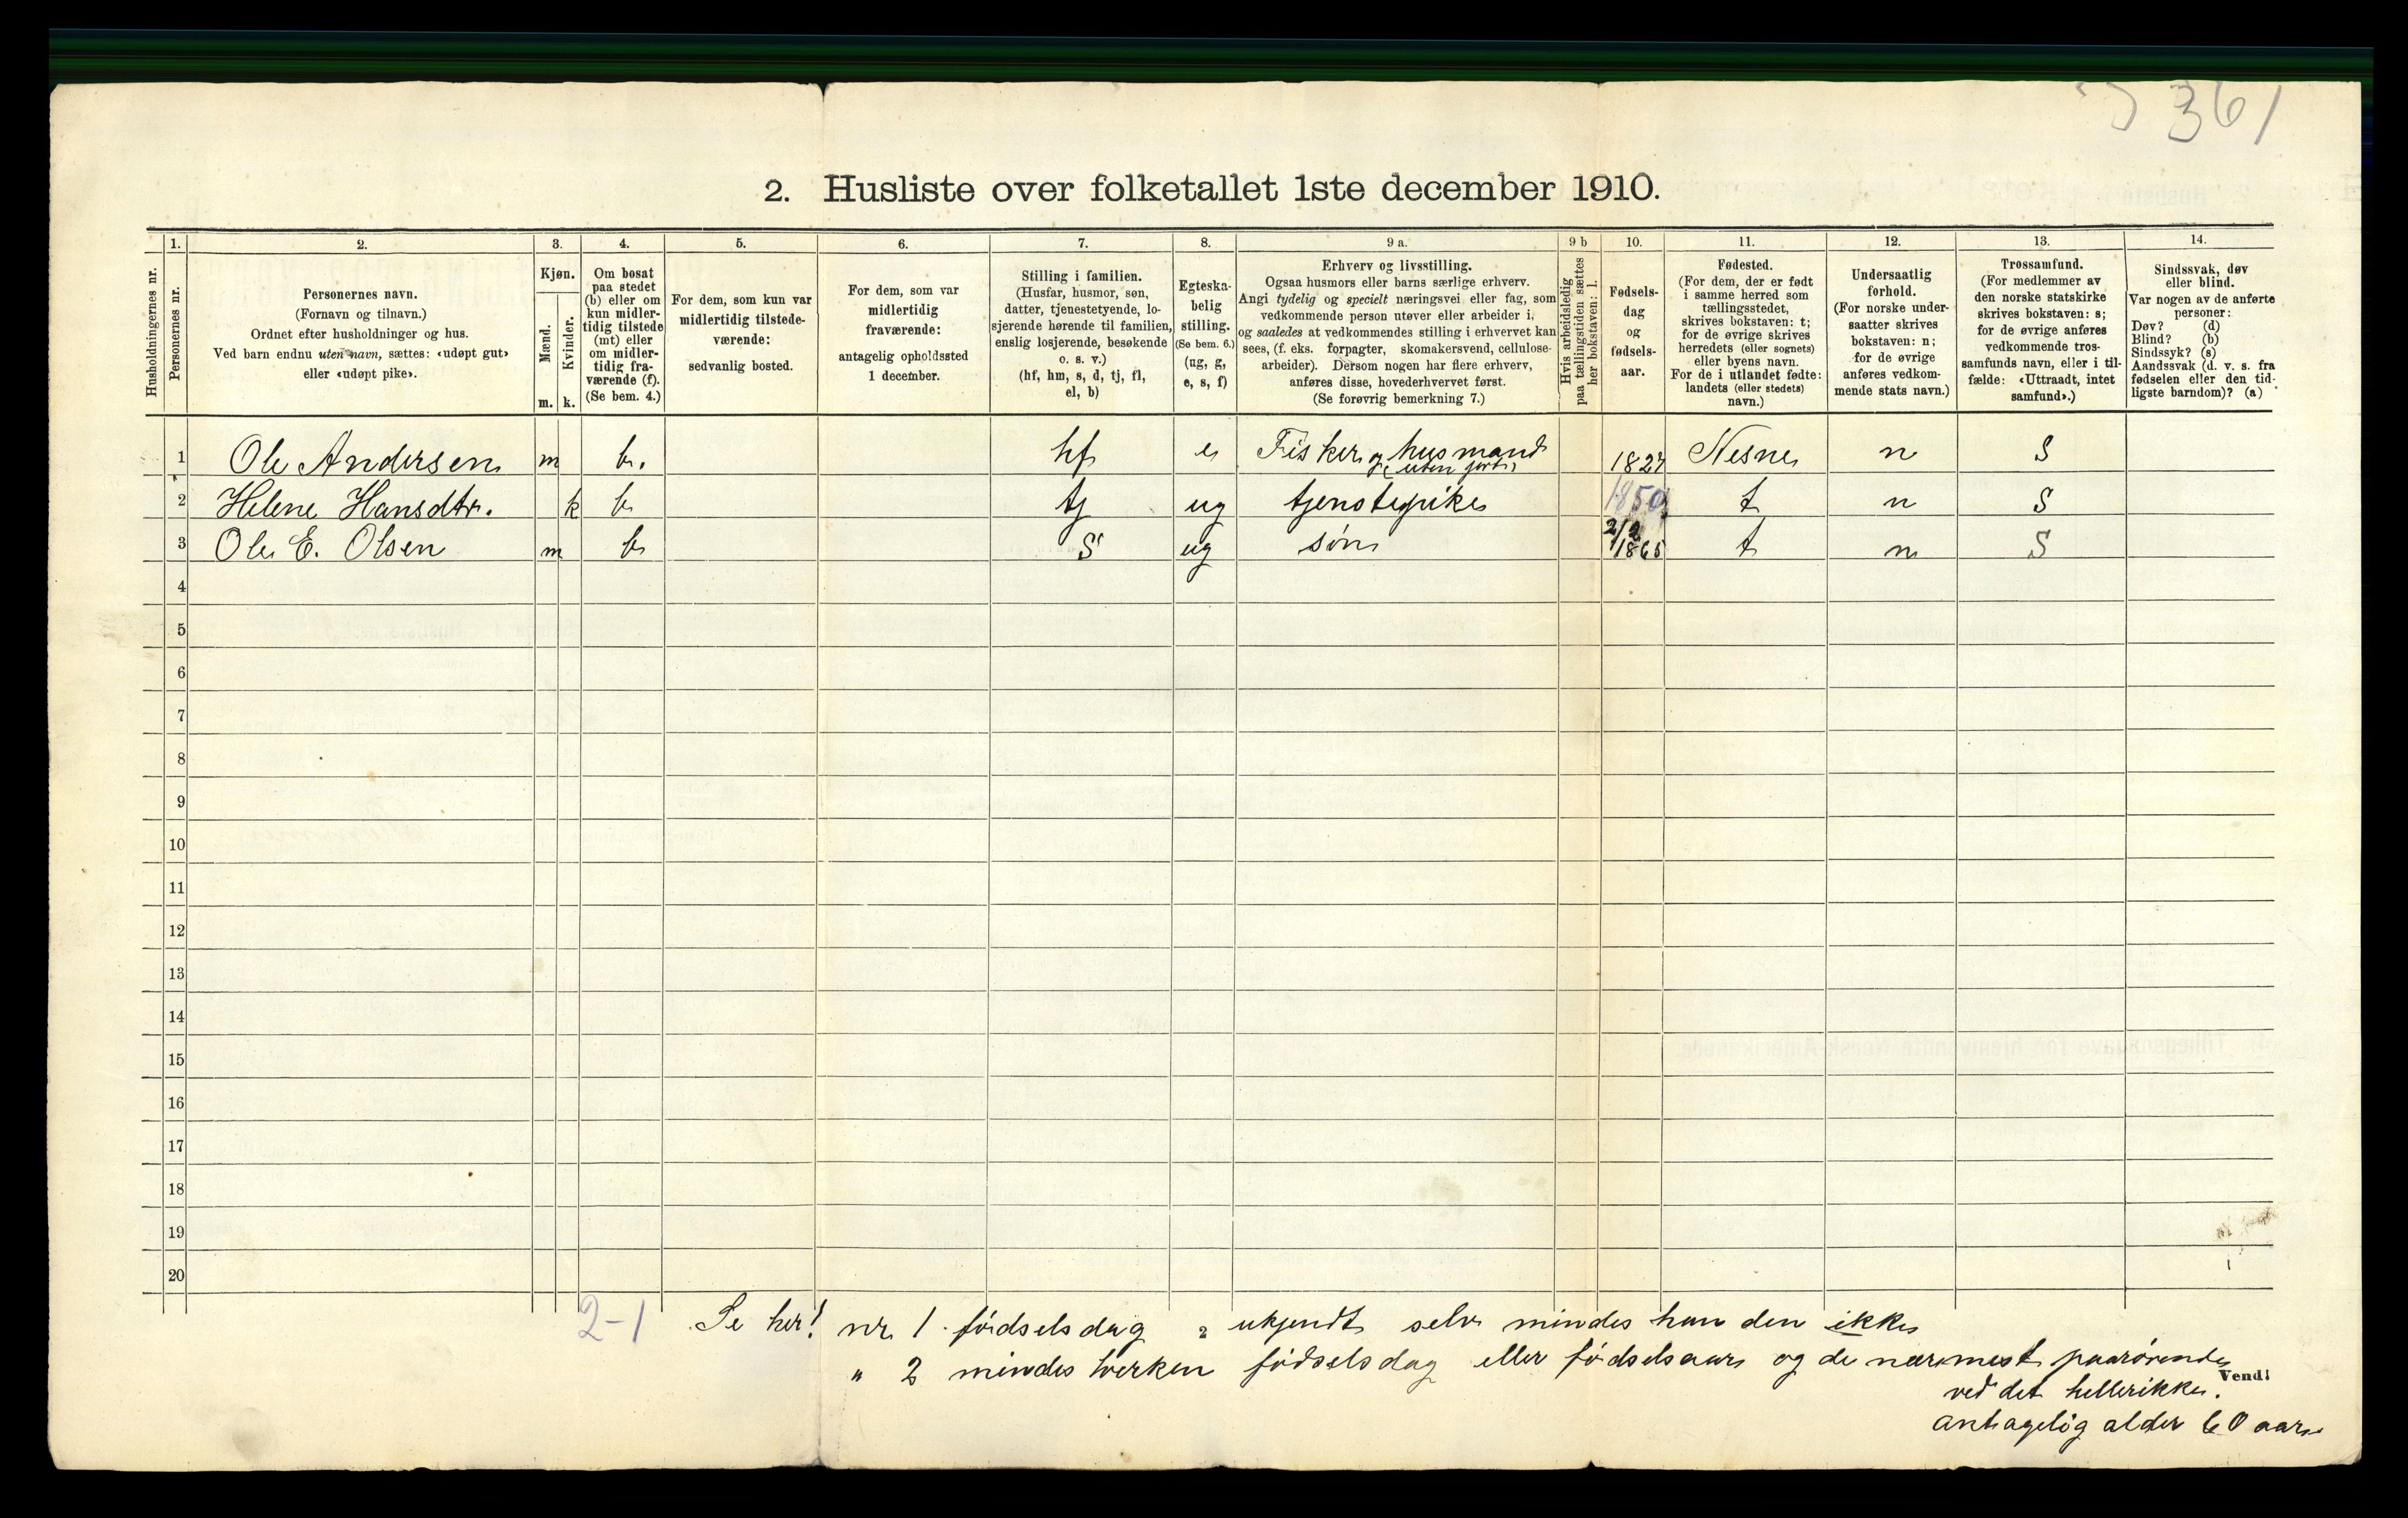 361
2. Husliste over folketallet 1ste december 1910.
Husholdningernes nr.
1.
Personernes nr.
2.
Personernes navn.
(Fornavn og tilnavn.)
Ordnet efter husholdninger og hus.
Ved barn endnu uten navn, sættes: «udøpt gut»
eller «udøpt pike».
3.
Kjøn.
Mænd.
Kvinder.
m. k.
4.
Om bosat
paa stedet
(b) eller om
kun midler-
tidig tilstede
(mt) eller
om midler-
tidig fra-
værende (f).
(Se bem. 4.)
5.
For dem, som kun var
midlertidig tilstede-
værende:
sedvanlig bosted.
6.
For dem, som var
midlertidig
fraværende:
antagelig opholdssted
1 december.
7.
Stilling i familien.
(Husfar, husmor, søn,
datter, tjenestetyende, lo-
sjerende hørende til familien,
enslig losjerende, besøkende
o. s. v.)
(hf, hm, s, d, tj, fl,
el, b)
8.
Egteska-
belig
stilling.
(Se bem. 6.)
(ug, g,
e, s, f)
9 a.
Erhverv og livsstilling.
Ogsaa husmors eller barns særlige erhverv.
Angi tydelig og specielt næringsvei eller fag, som
vedkommende person utøver eller arbeider i,
og saaledes at vedkommendes stilling i erhvervet kan
sees, (f. eks. forpagter, skomakersvend, cellulose-
arbeider). Dersom nogen har flere erhverv,
anføres disse, hovederhvervet først.
(Se forøvrig bemerkning 7.)
9 b
Hvis arbeidsledig
paa tællingstiden sættes
her bokstaven: l.
10.
Fødsels-
dag
og
fødsels-
aar.
11.
Fødested.
(For dem, der er født
i samme herred som
tællingsstedet,
skrives bokstaven: t;
for de øvrige skrives
herredets (eller sognets)
eller byens navn.
For de i utlandet fødte:
landets (eller stedets)
navn.)
12.
Undersaatlig
forhold.
(For norske under-
saatter skrives
bokstaven: n;
for de øvrige
anføres vedkom-
mende stats navn.)
13.
Trossamfund.
(For medlemmer av
den norske statskirke
skrives bokstaven: s;
for de øvrige anføres
vedkommende tros-
samfunds navn, eller i til-
fælde: «Uttraadt, intet
samfund».)
14.
Sindssvak, døv
eller blind.
Var nogen av de anførte
personer:
Døv? (d)
Blind? (b)
Sindssyk? (s)
Aandssvak (d. v. s. fra
fødselen eller den tid-
ligste barndom)? (a)
1 Ole Andersen m b. hf e Fisker og husmand (uten jord) 1827 Nesne n S
2 Helene Hansdtr. k b tj ug tjenestepike 1850 t n S
3 Ole E. Olsen m b S ug søn 1865 t n S
4
5
6
7
8
9
10
11
12
13
14
15
16
17
18
19
20
2-1 Se her! nr 1 fødselsdag ukjendt selv mindes han den ikke
" 2 mindes hverken fødselsdag eller fødselsaar og de nærmest paarørende
Vend!
ved det hellerikke.
antagelig alder 60 aar